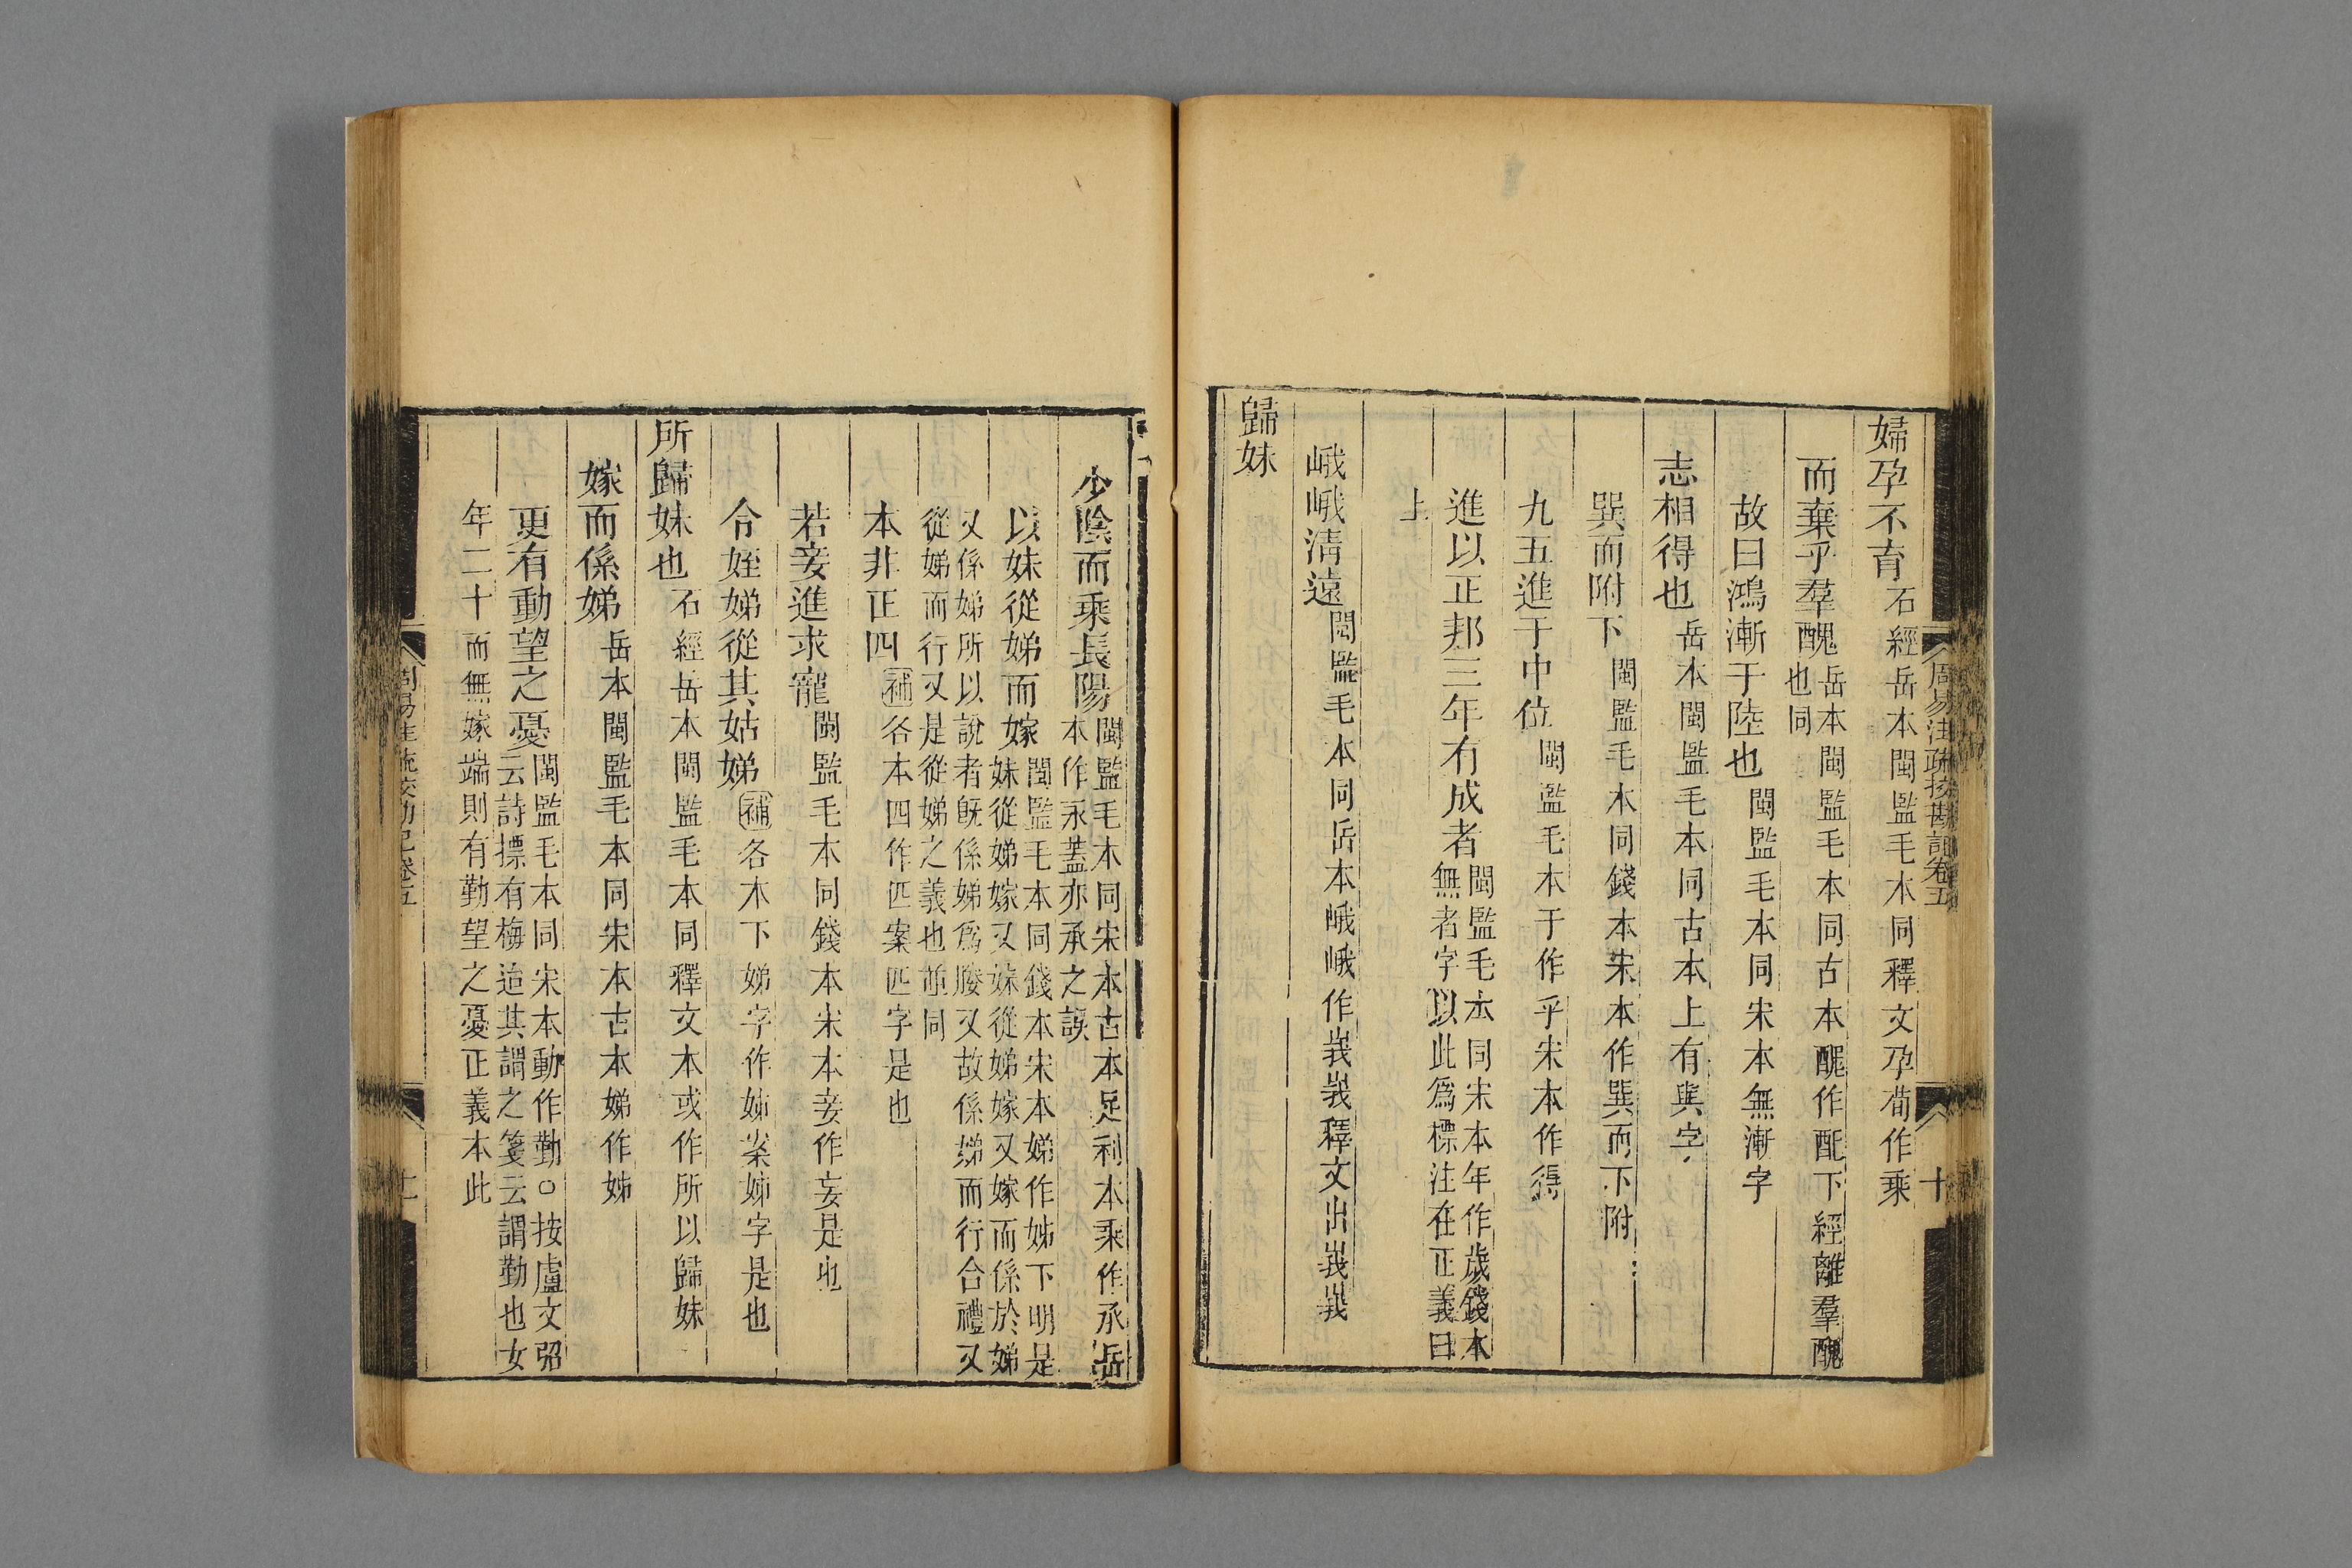 婦孕不育石經岳本閩監毛本同釋文孕荀作乘
而棄乎羣醜岳本閩監毛本同古本醜作配下經離羣醜
也同
故曰鴻漸于陸也閩監毛本同宋本無漸字
志相得也岳本閩監毛本同古本上有與字
巽而附下閩監毛本同錢本宋本作巽而下附
九五進于中位閩監毛本于作乎宋本作得
進以正邦三年有成者閩監毛本同宋本年作歲錢本
無者字以此爲標注在正義曰
上
峨峨清遠閩監毛本同岳本峨峨作峩峩釋文出峩峩
歸妹
周易注疏挍勘記卷五
十
少陰而乘長陽閩監毛本同宋本古本足利本乘作承岳
本作永蓋亦承之誤
以妹從娣而嫁閩監毛本同錢本宋本娣作姊下明是
妹從娣嫁又妹從娣嫁又嫁而係於娣
又係娣所以說者旣係娣爲媵又故係娣而行合禮又
從娣而行又是從娣之義也並同
本非正四補各本四作匹案匹字是也
若妾進求寵閩監毛本同錢本宋本妾作妄是也
令姪娣從其姑娣補各本下娣字作姊案姊字是也
所歸妹也石經岳本閩監毛本同釋文本或作所以歸妹
嫁而係娣岳本閩監毛本同宋本古本娣作姊
更有動望之憂閩監毛本同宋本動作勤○按盧文弨
云詩摽有梅迨其謂之箋云謂勤也女
年二十而無嫁端則有勤望之憂正義本此
周易注疏挍勘記卷五